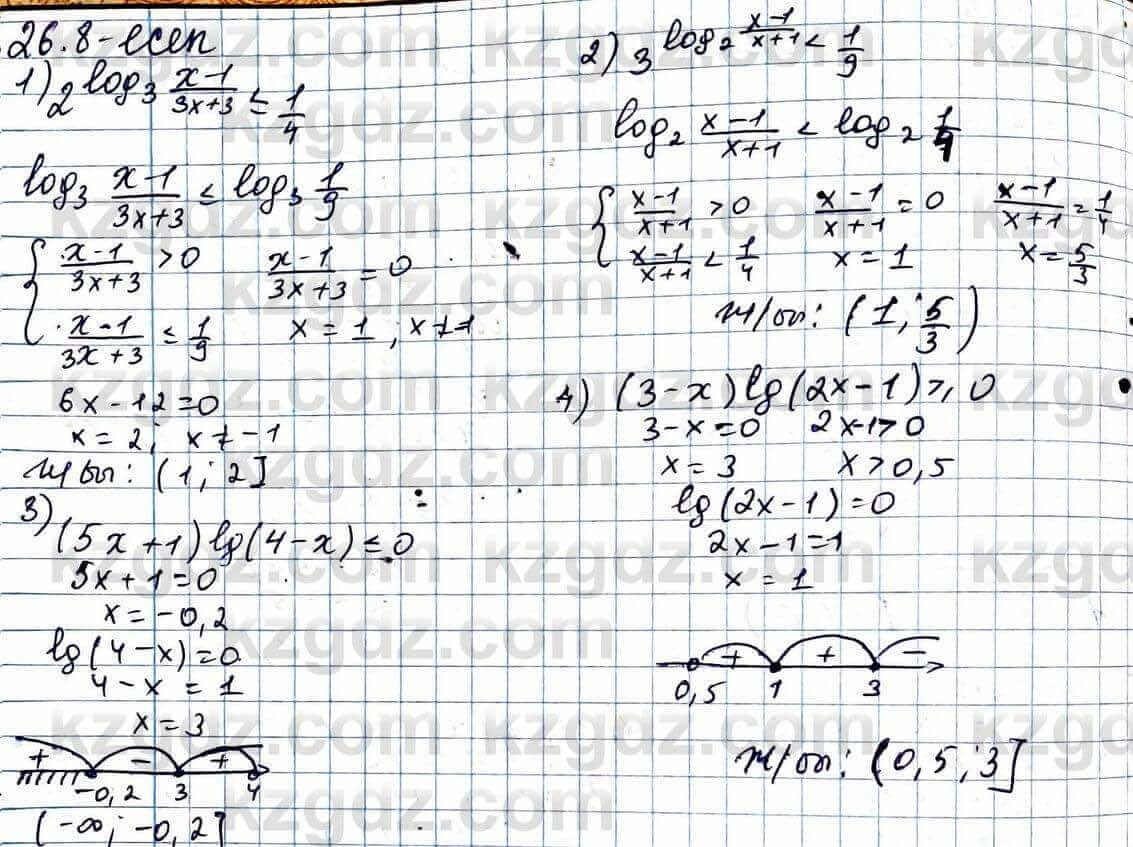 26.8-есеп
1) 2^{log_3 \frac{x-1}{3x+3}} ≤ \frac{1}{4}
log_3 \frac{x-1}{3x+3} ≤ log_3 \frac{1}{9}
{ \frac{x-1}{3x+3} > 0   \frac{x-1}{3x+3} = 0
\frac{x-1}{3x+3} ≤ \frac{1}{9}   x = 1 ; x ≠ -1
6x - 12 = 0
x = 2; x ≠ -1
Ж/бы: (1; 2]
3) (5x+1) lg(4-x) ≤ 0
5x+1=0
x = -0,2
lg(4-x)=0
4-x = 1
x = 3
+ - +
-0,2 3 4
(-∞; -0,2]
2) 3^{log_2 \frac{x-1}{x+1}} < \frac{1}{9}
log_2 \frac{x-1}{x+1} < log_2 \frac{1}{4}
{ \frac{x-1}{x+1} > 0   \frac{x-1}{x+1} = 0   \frac{x-1}{x+1} = \frac{1}{4}
\frac{x-1}{x+1} < \frac{1}{4}   x = 1   x = \frac{5}{3}
Ж/бы: (1; \frac{5}{3})
4) (3-x) lg(2x-1) ≥ 0
3-x=0   2x-1>0
x=3   x>0,5
lg(2x-1)=0
2x-1=1
x = 1
+ + -
0,5 1 3
Ж/бы: (0,5; 3]
kzgdz.com